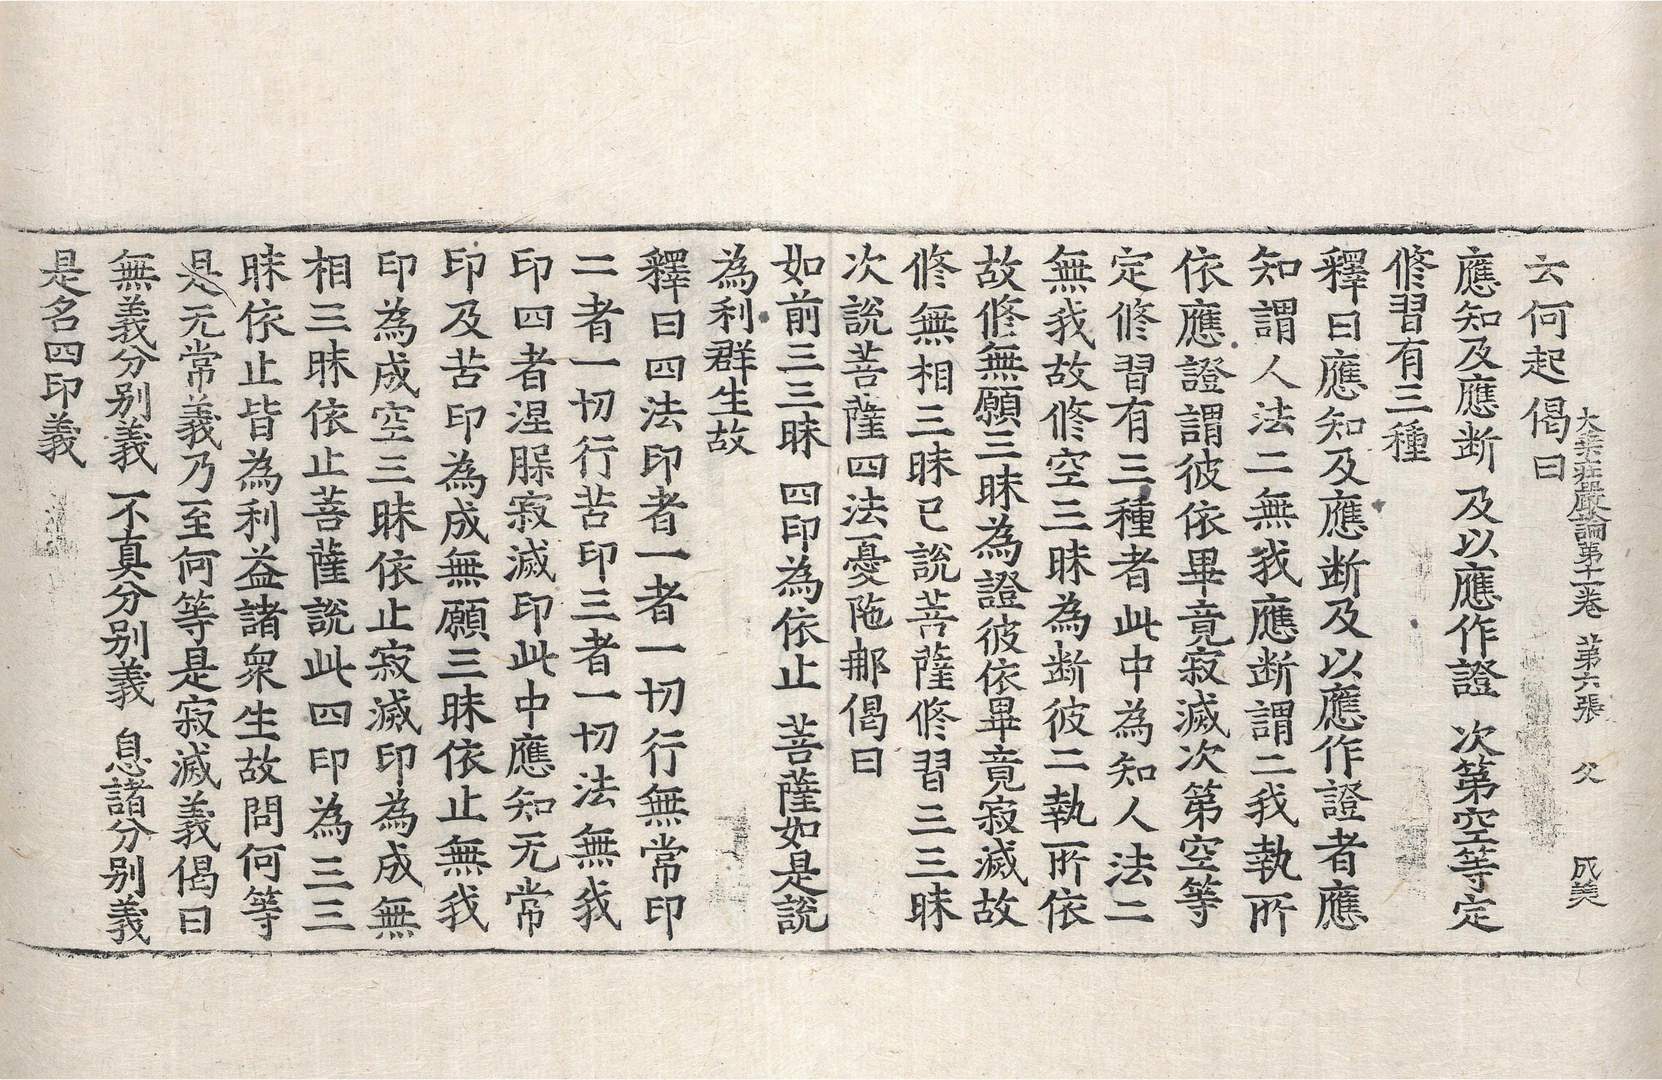 大乘莊嚴論第十一卷　第六張　父　成美
云何起偈曰
應知及應断　及以應作證　次第空等定
修習有三種
釋曰應知及應断及以應作證者應
知謂人法二無我應断謂二我執所
依應證謂彼依畢竟寂滅次第空等
定修習有三種者此中為知人法二
無我故修空三昧為断彼二執所依
故修無願三昧為證彼依畢竟寂滅故
修無相三昧已說菩薩修習三三昧
次說菩薩四法憂陁那偈曰
如前三三昧　四印為依止　菩薩如是說
為利群生故
釋曰四法印者一者一切行無常印
二者一切行苦印三者一切法無我
印四者涅脲寂滅印此中應知无常
印及苦印為成無願三昧依止無我
印為成空三昧依止寂滅印為成無
相三昧依止菩薩說此四印為三三
昧依止皆為利益諸衆生故問何等
是无常義乃至何等是寂滅義偈曰
無義分别義　不真分别義　息諸分别義
是名四印義